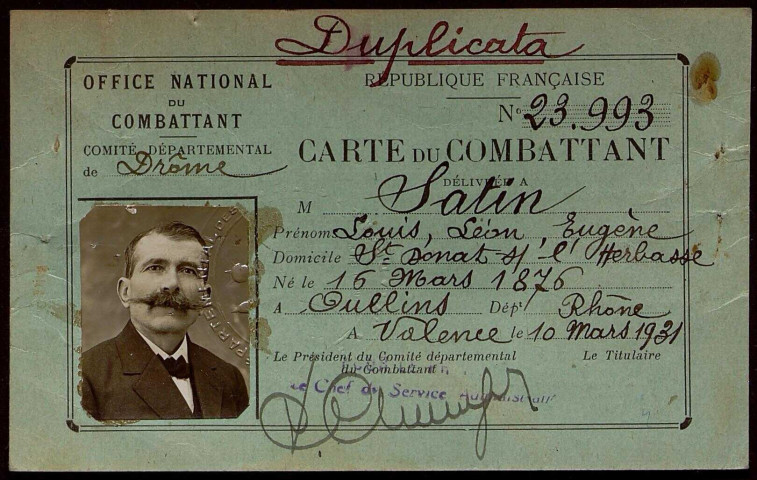 Duplicata
OFFICE NATIONAL
DU
COMBATTANT
COMITÉ DÉPARTEMENTAL
de Drôme
RÉPUBLIQUE FRANÇAISE
N° 23.993
CARTE DU COMBATTANT
DÉLIVRÉE A
M Satin
Prénom Louis, Léon, Eugène
Domicile St Donat s/ l'Herbasse
Né le 16 Mars 1876
A Oullins Dépt Rhône
A Valence le 10 Mars 1931
Le Président du Comité départemental
du Combattant
Le Titulaire
Le Chef du Service